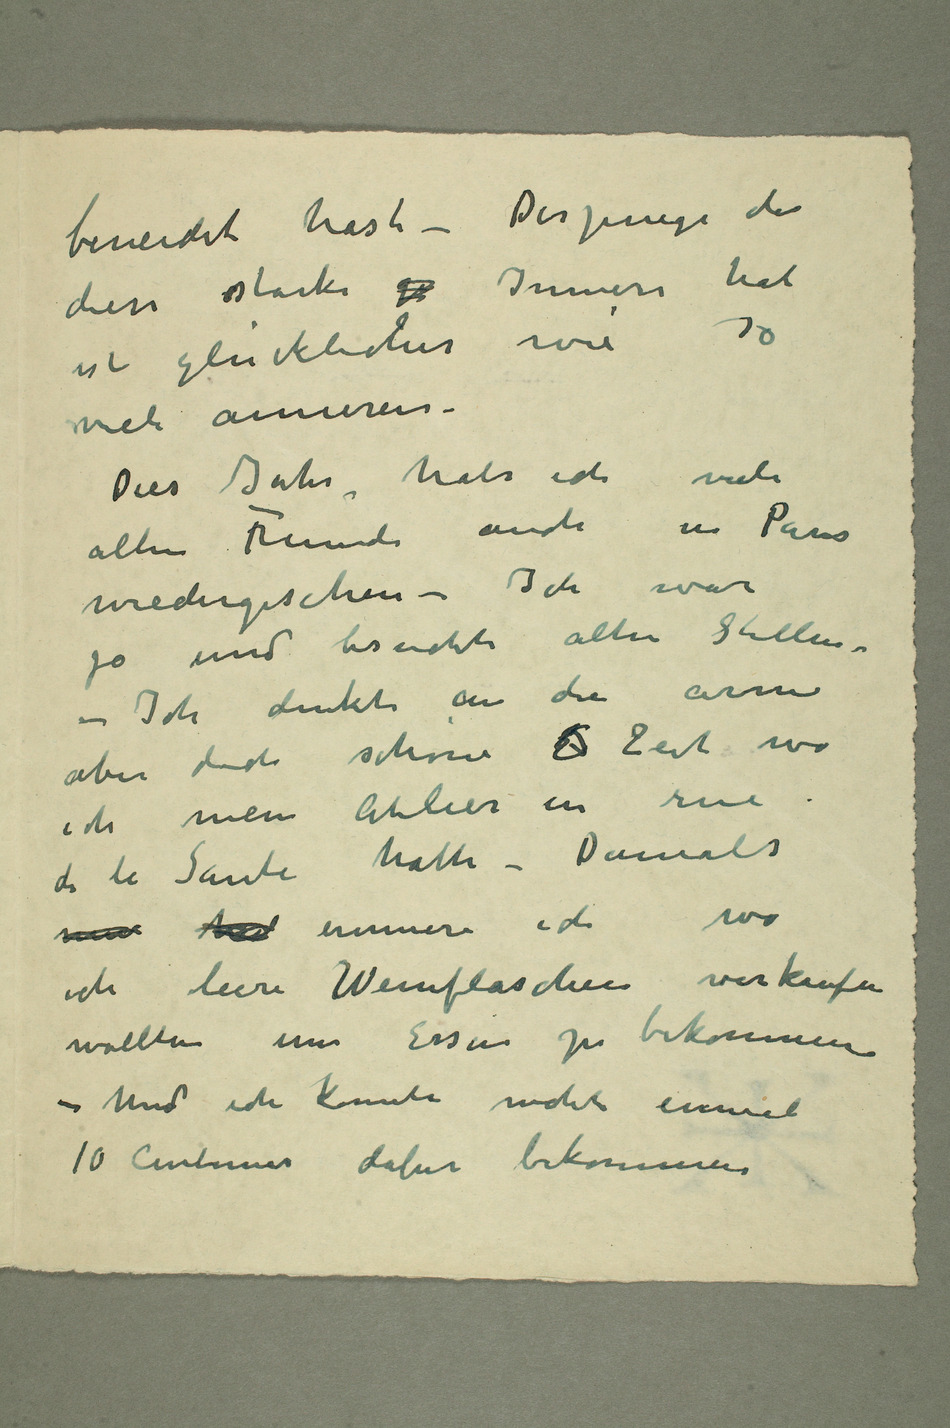 beneidet hast – Derjenige der
diese starke Innere hat
ist glücklicher wie so
viele anneren –
Dies Jahr, habe ich viele
alten Freunde auch in Paris
wiedergesehen – Ich war
ja und besuchte alte Stellen –
– Ich denkte an die arme
aber doch schöne Zeit wo
ich mein Atelier in rue
de la Sante hatte – Damals
erinnere ich wo
ich leere Weinflaschen verkaufen
wollten um Essen zu bekommen
– Und ich konnte nicht einmal
10 Centimes dafur bekommen